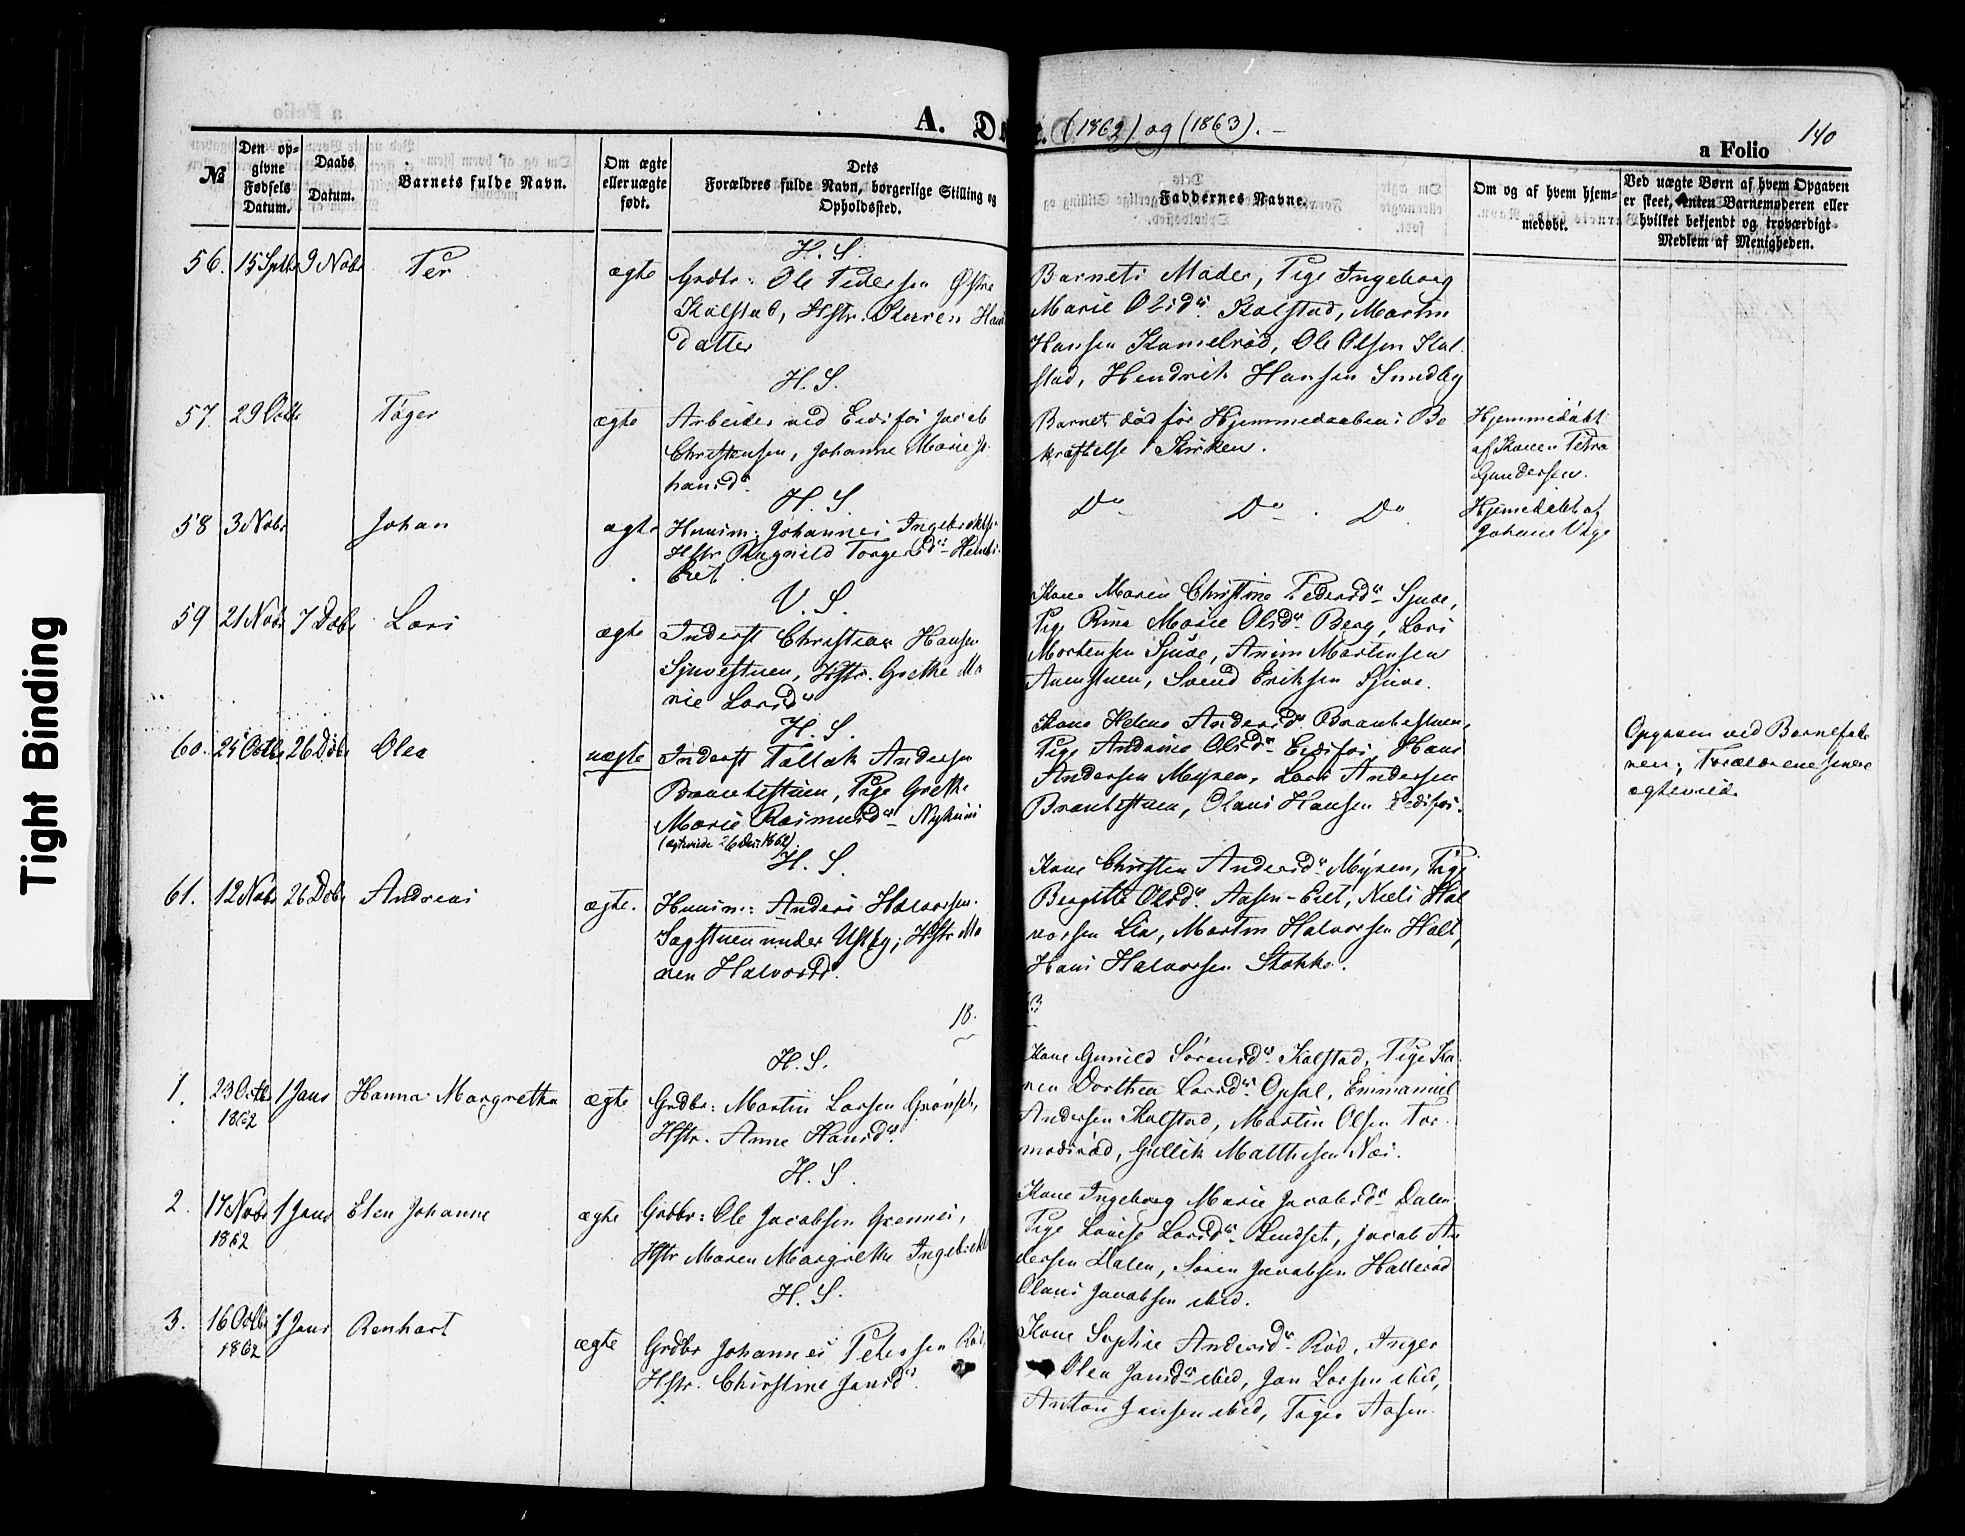 Tight Binding
A. Dr
(1862) og (1863).
140
a Folio
№
Den op-
givne
Fødsels
Datum.
Daabs
Datum.
Barnets fulde Navn.
Om ægte
eller uægte
født.
Dets
Forældres fulde Navn, borgerlige Stilling og
Opholdssted.
Faddernes Navne.
Om og af hvem hjem-
medøbt.
Ved uægte Børn af hvem Opgaven
er skeet, enten Barnemoderen eller
hvilket bekjendt og troværdigt
Medlem af Menigheden.
H. S.
56. 15 Septbr 9 Novbr Per ægte Grdbr: Ole Pedersen Østre
Kalstad, Hstr. Karen Hans
datter
Barnets Moder, Pige Ingeborg
Marie Olsdr. Kalstad, Martin
Hansen Kamelrød, Ole Olsen Kal-
stad, Hendrik Hansen Sundby
H. S.
57. 29 Octbr Tøger ægte Arbeider ved Eidsfos Jacob
Christensen, Johanne Marie Jo-
hansdr.
Barnet død før Hjemmedaabens Be
kræftelse i Kirken.
Hjemmedøbt
af Konen Petra
Gundersen.
H. S.
58 3 Novbr Johan ægte Huusm: Johannes Ingebrets
Hstr. Ragnild Torgersdr.
Eiet
Do Do. Do
Hjemedøbt af
Johanne
V. S.
59 21 Novbr 7 Decbr Lars ægte Inderst Christian Hansen
Sjuestuen, Hstr. Grethe Ma
rie Larsdr
Kone Maren Christine Pedersdr. Sjue,
Pige Rina Marie Olsdr. Berg, Lars
Mortensen Sjue, Anton Martinsen
Svend Eriksen Sjue.
H. S.
60. 25 Octbr 26 Dcbr Olea uægte Inderst Tallak Andersen
Braatestuen, Pige Grethe
Marie Rasmusdr.
(ægteviede 26 Decbr 1862).
Kone Helene Andersdr Braatestuen,
Pige Andrine Olsdr. Eidsfos, Hans
Andersen Myren, Lars Andersen
Braatestuen, Olaus Hansen Eidsfos.
Opgaven ved Barnefade
ren; Forældrene senere
ægteviede
H. S.
61. 12 Novbr 26 Decbr Andreas ægte. Huusm: Anders Halvorsen
Sagstuen under Hstr Ma
ren Halvorsdr.
Kone Christen Andersdr. Myren, Pige
Bergitte Olsdr. Aasen-Eiet, Niels Hal
vorsen Lia, Martin Halvorsen Holt,
Hans Halvorsen Stokke.
18
63
H. S.
1. 23 Octbr 1 Janr Hanna Margrethe ægte Grdbr: Martin Larsen Grønset,
1862
Hstr. Anne Hansdr.
Kone Gunild Sørensdr. Kalstad, Pige Ka
ren Dorthea Larsdr. Opsal, Emmanuel
Andersen Kalstad, Martin Olsen Tor-
modsrød, Gullik Mathisen Næs.
H. S.
2. 17 Novbr 1 Janr Elen Johanne ægte Grdbr: Ole Jacobsen Grennes,
1862
Hstr Maren Margrethe Ingebrets
Kone Ingeborg Marie Jacobsdr. Dalen
Pige Lovise Larsdr. Lindset, Jacob An
dersen Dalen, Søren Jacobsen Hallerød
Olaus Jacobsen ibid.
H. S.
3. 16 Octbr 1 Janr Renhart ægte Grdbr Johannes Petersen Rød,
1862
Hstr. Christine Jansdr.
Kone Sophie Andersdr. Rød, Inger
Olea Jansdr. ibid, Jan Larsen ibid,
Anton Jansen ibid, Tøger Aasen.